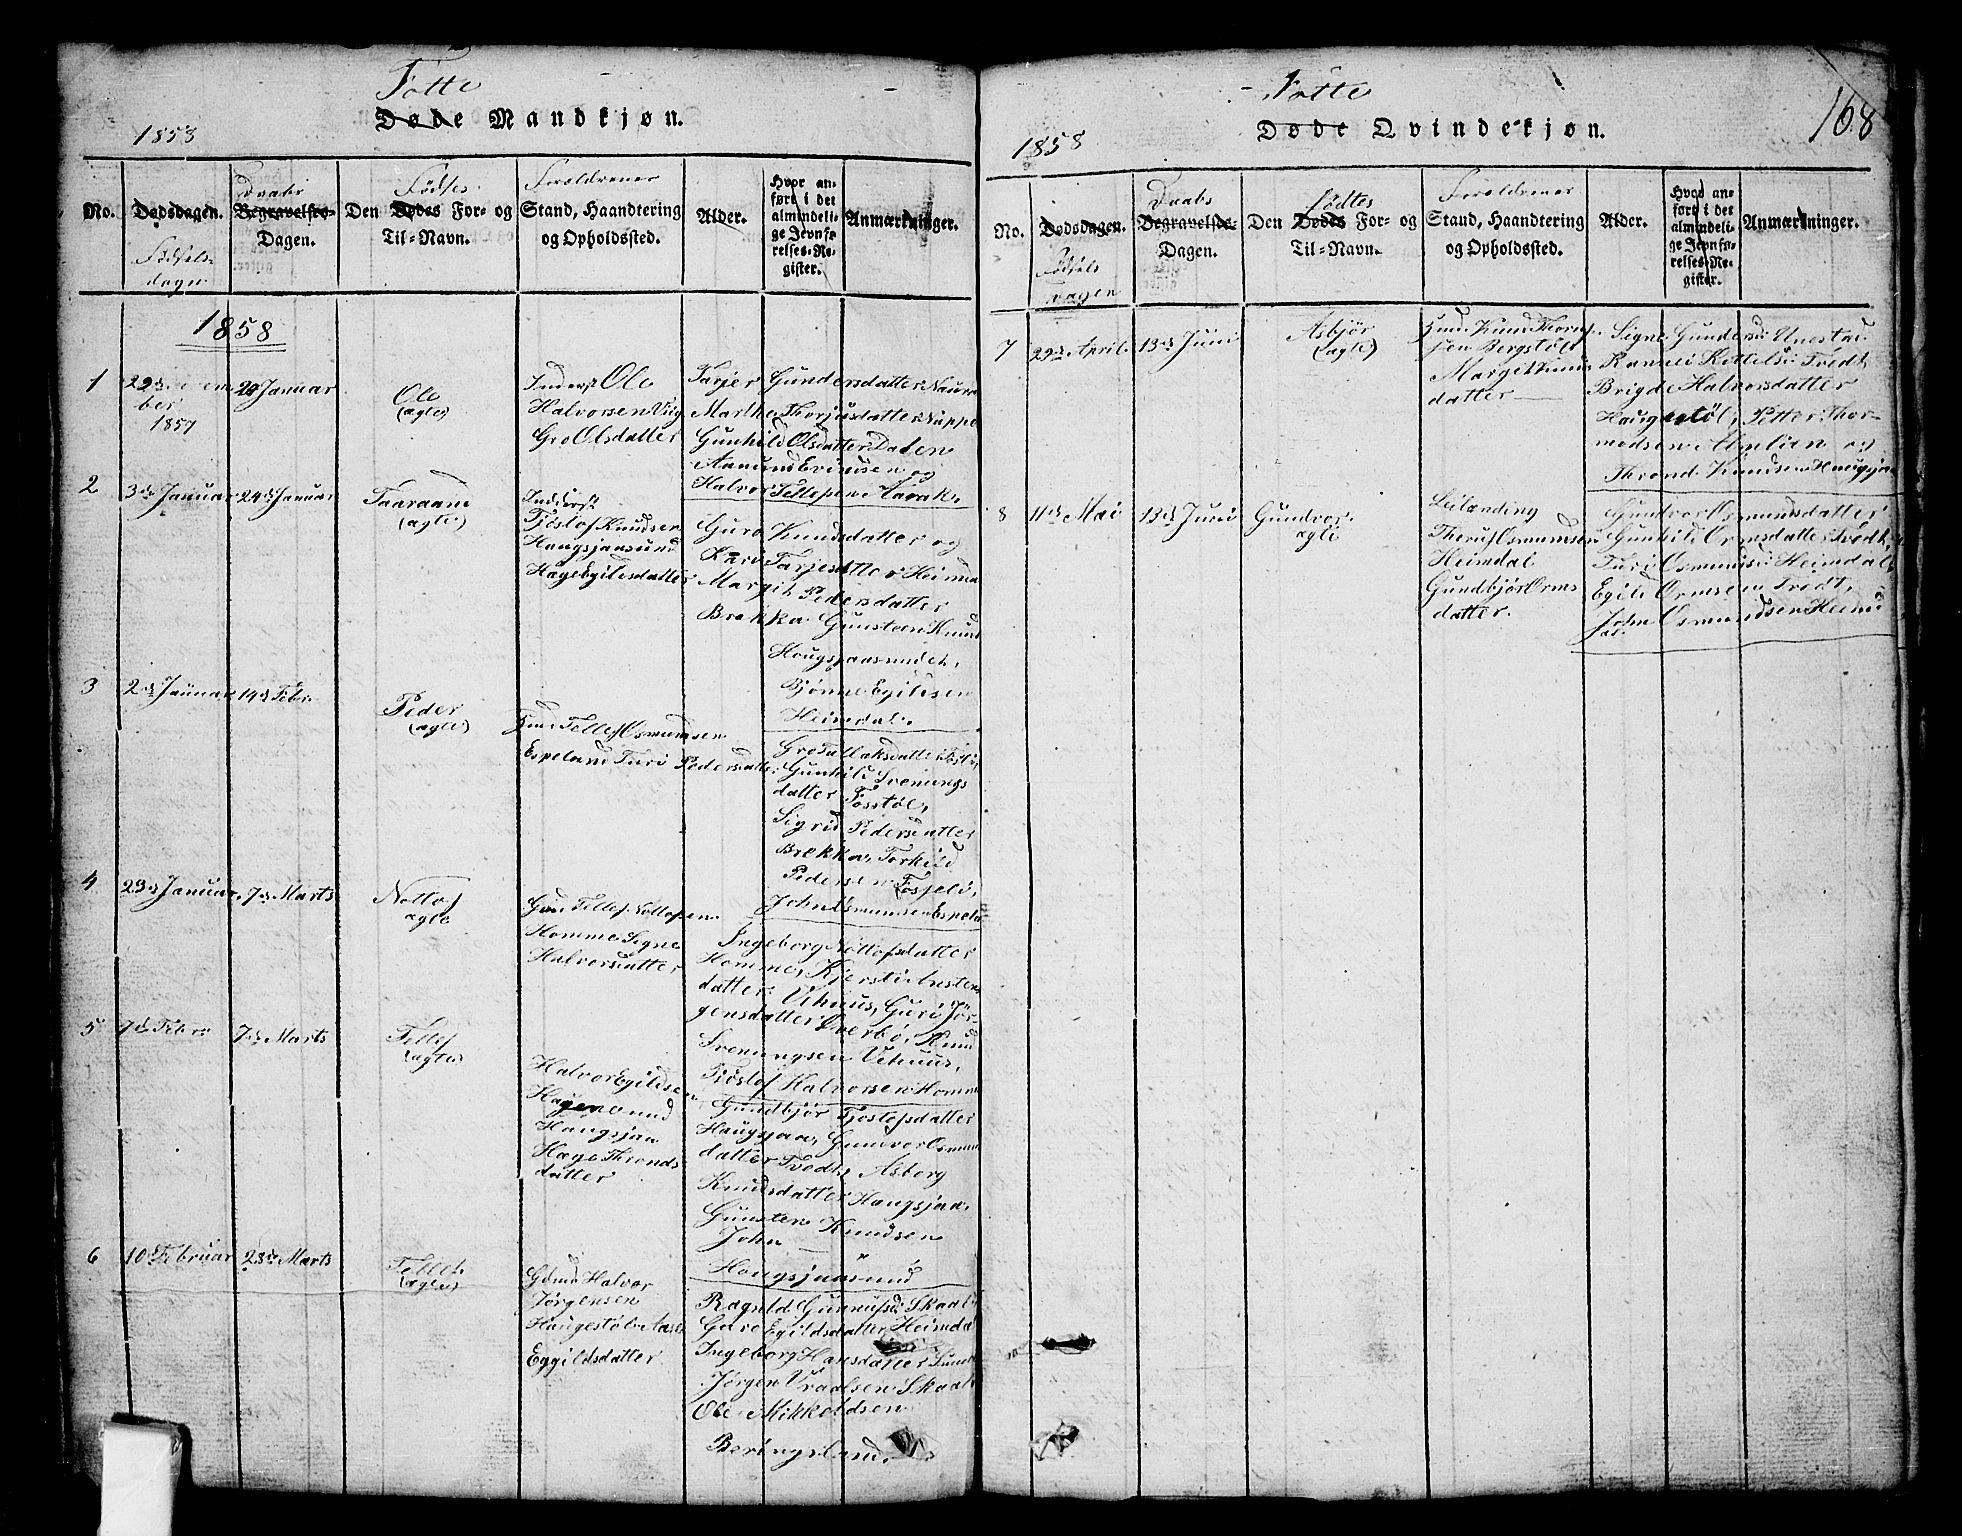 Føtte
Døde Mandkjøn.
1858
No.
Dødsdagen.
Fødsels-
dagen
Daabs
Begravelses-
Dagen.
Fødtes
Den Dødes For- og
Til-Navn.
Forældrenes
Stand, Haandtering
og Opholdssted.
Alder.
Hvor an-
ført i det
almindeli-
ge Jevnfø-
relses-Re-
gister.
Anmærkninger.
1858
1
ber
1857
Januar
Ole
(ægte)
Inderst Ole
Halvorsen
Gro Olsdatter
Tarjer Gundersdatter
Marthe Thorjusdatter
Gunhild Olsdatter Dalen
Aanund Evindsen og
Halvor Tellefsen Aavak.
2
3de Januar
24de Januar
Taaraand
(ægte)
Inderst
Tjöstof Knudsen
Haugsjaasund
Hæge Egilesdatter
Guro Knudsdatter og
Kari Tarjesdatter Heimda
Margit Pedersdatter
Brekka Gunsteen Knud
Hougsjaasundet,
Bjönne Egilsen
Heimdal.
3
2de Januar
14de Febr.
Peder
(ægte)
Gmd Tellef Osmundsen
Espeland Turi Pedersdatter
Gunhild Svenungs
datter Fosstöl,
Sigrid Pedersdatter
Brekka, Torkild
Pedersen Fosseli,
John Osmundsen Espela
4
23de Januar
7de Marts
Nottof
ægte
Gmd Tellef Nottofsen
Homme Signe
Halvorsdatter
Ingeborg Nottofsdatter
Homme, Kjersti
datter Vehuus, Guri Jör-
gensdatter Överbö, Knud
Svenungsen Vehuus,
Tjöstof Halvorsen Homm
5
7de Febr
7de Marts
Tellef
(ægte)
Halvor Egildse
Hagen
Haugsjaa
Hæge Thronds
datter
Gundbjör Tjostofsdatter
Haugsjaa, Gunvor Osmun
datter Tvedt, Asborg
Knudsdatter Haugsjaa,
Gunsten Knudsen
John — "
Hougsjaasund
6
10 Februar
28de Marts
Tellef
(ægte)
Gmd Halvor
Jörgensen
Haugestöl Aase
Eggildsdatter
Ragnild Gunnufsd: Skaal
Guro Egildsdatter Heimda
Ingeborg Hansdatter
Jörgen Vraalsen Skaal
Ole Mikkeldsen
Beringsland.
Føtte
Døde Qvindekjøn.
168
1858
No.
Dødsdagen.
Fødsels
dagen
Daabs
Begravelses-
Dagen.
Fødtes
Den Dødes For- og
Til-Navn.
Forældrenes
Stand, Haandtering
og Opholdssted.
Alder.
Hvor an-
ført i det
almindeli-
ge Jevnfø-
relses-Re-
gister.
Anmærkninger.
7
22de April
13de Juni
Asbjör
(ægte)
Gmd. Knud Thorn
sen Bergstöl
Margit Knuds
datter
Signe Gundersd: Unestad
Rannei Kettelsd: Tvedt
Brigde Halvorsdatter
Haugestöl, Petter Thor-
modsen og
Thrond Knudsen Haugsjaa
8
11de Mai
13de Juni
Gundvor
ægte
Leilænding
Osmundsen
Heimdal
Gundbjör Orms
datter.
Gundvor Osmundsdatter
Gunhild Ormsdatter Tvedt,
Turi Osmundsd: Heimdal
Egild Ormsen Tvedt,
John Osmundsen Heim
dal